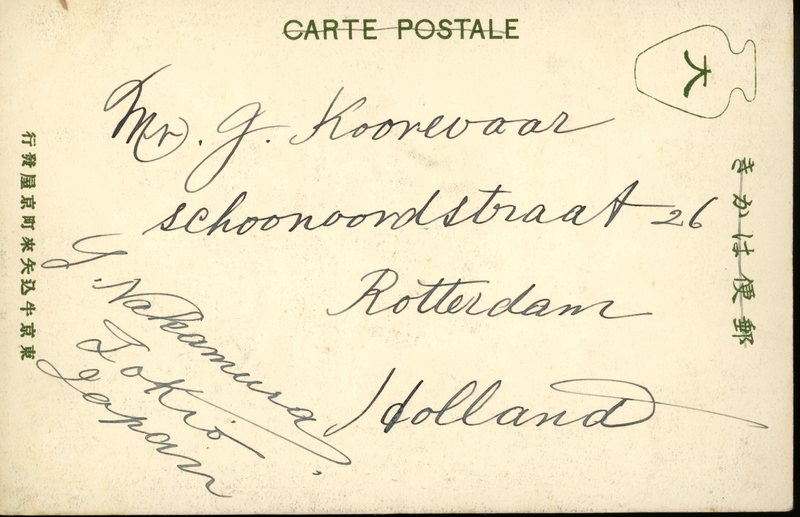 CARTE POSTALE
大
Mr. G. Koorevaar
schoonoordstraat 26
Rotterdam
Holland
Y. Nakamura
Tokio
Japan
きかは便郵
行發屋京町來矢込牛京東